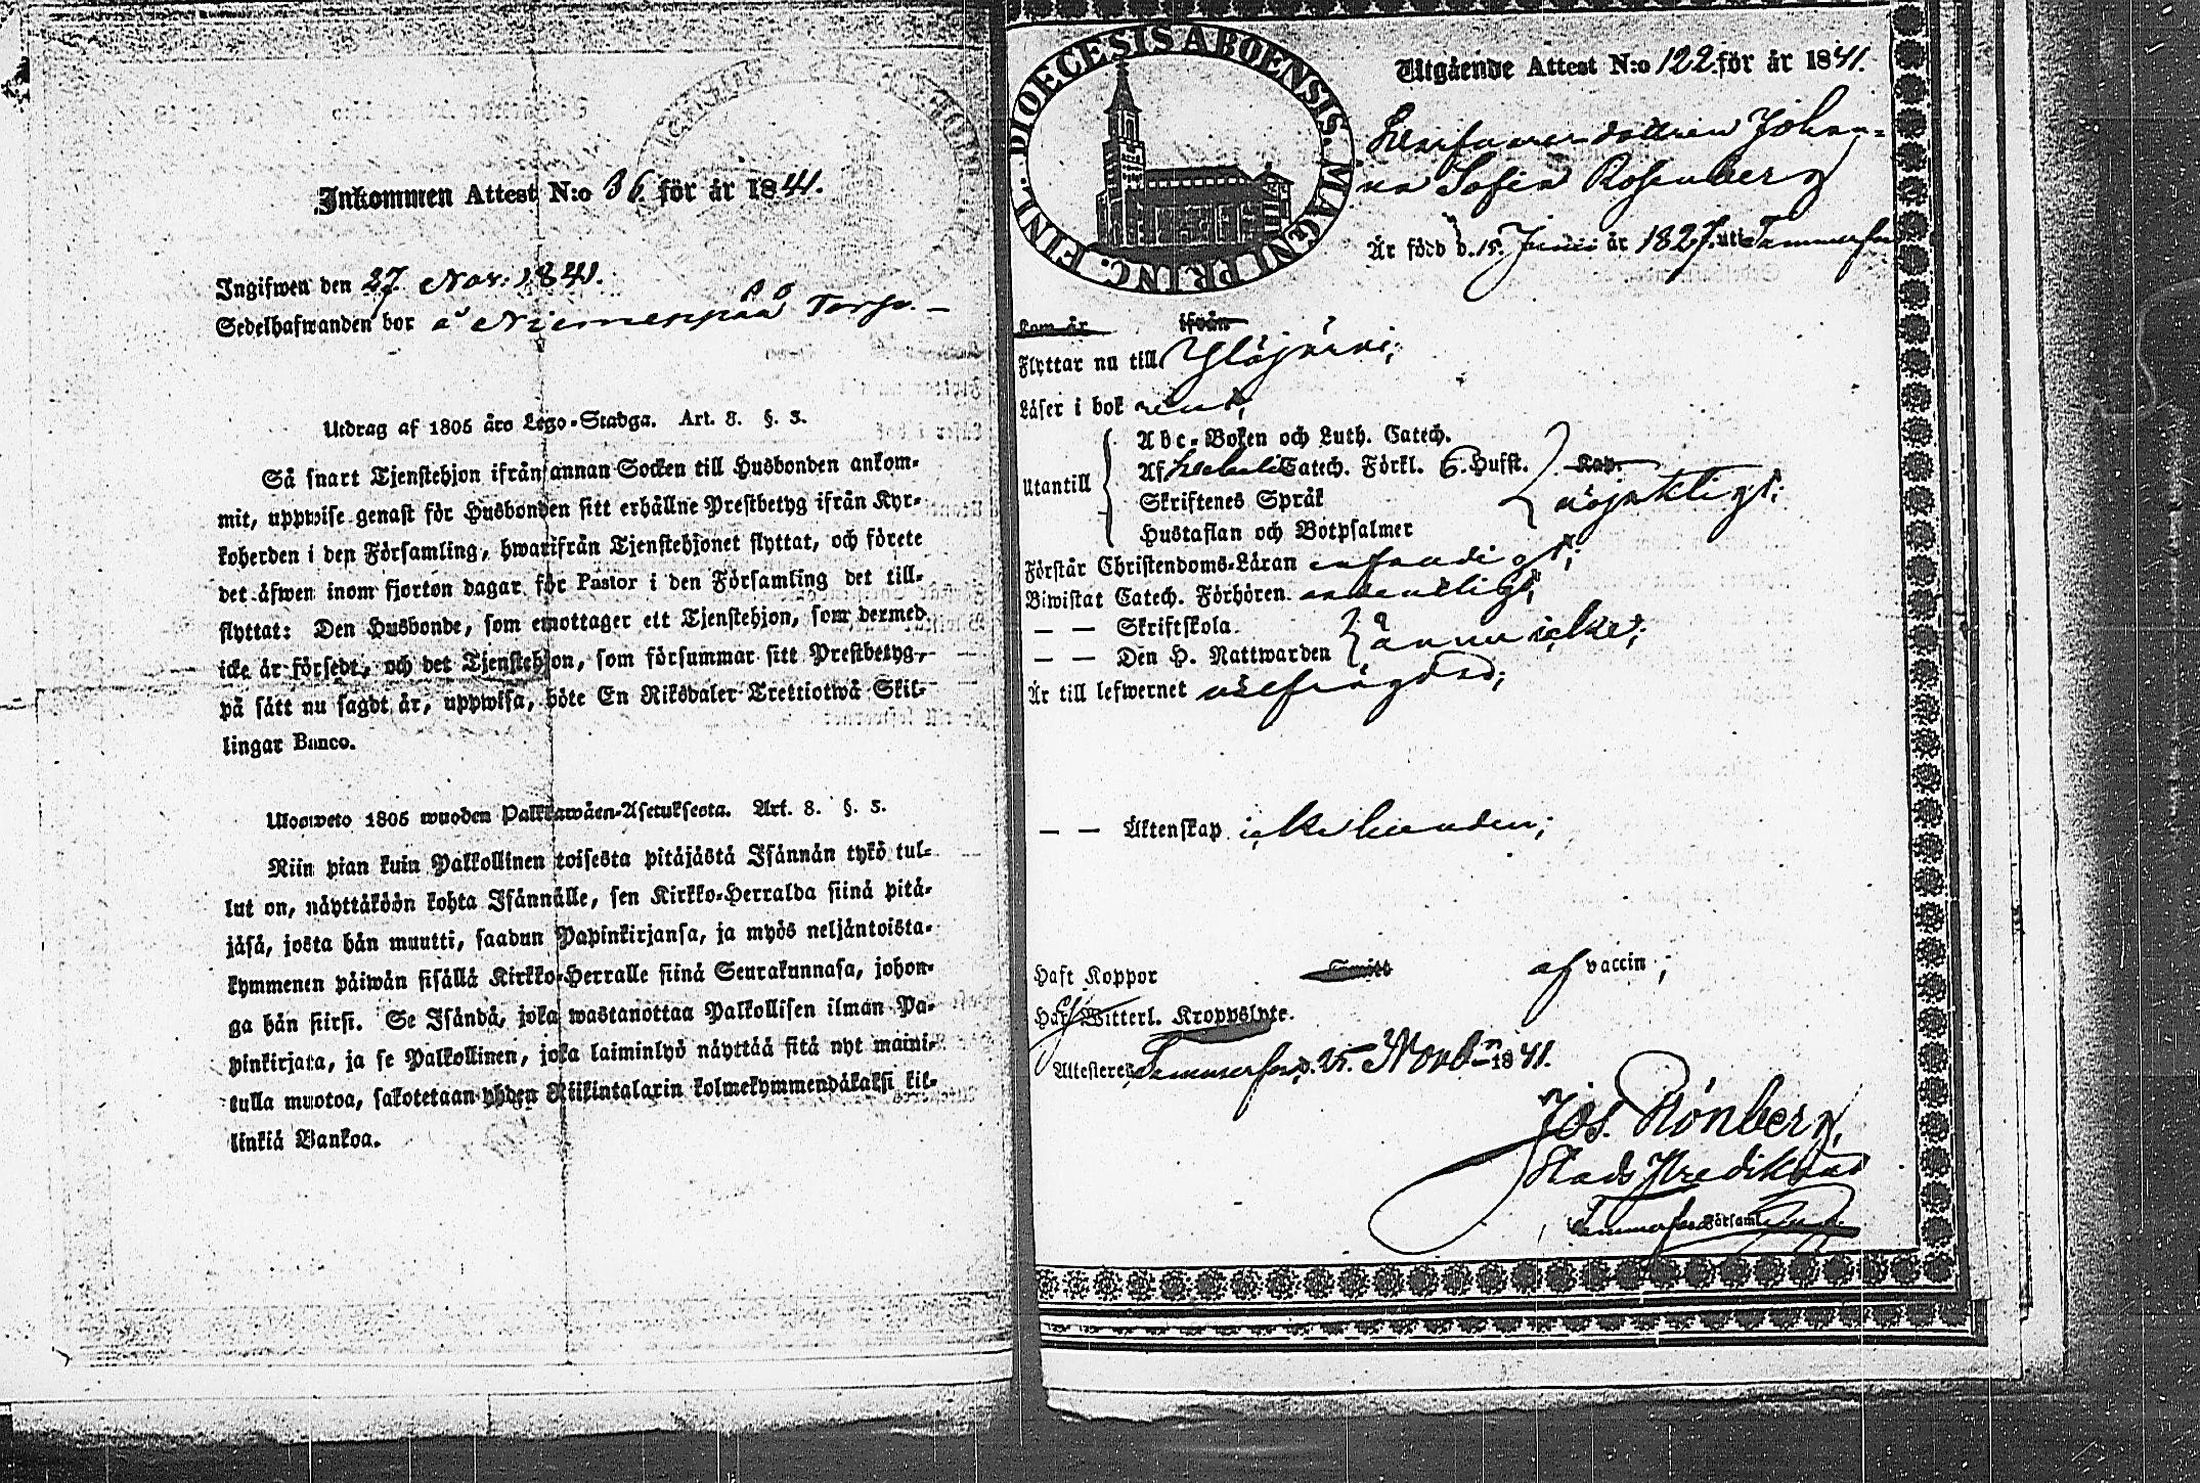 Inkommen Attest N:o 36. för år 1841.
Ingifwen den 27 Nov. 1841.
Sedelhafwanden bor å Niemenpää Torp. –
Utdrag af 1805 års Lego-Stadga. Art. 8. §. 3.
Så snart Tjenstehjon ifrån annan Socken till Husbonden ankom-
mit, uppwise genast för Husbonden sitt erhållne Prestbetyg ifrån Kyr-
koherden i den Församling, hwarifrån Tjenstehjonet flyttat, och förete
det äfwen inom fjorton dagar för Pastor i den Församling det till-
flyttat: Den Husbonde, som emottager ett Tjenstehjon, som dermed
icke är försedt, och det Tjenstehjon, som försummar sitt Prestbetyg,
på sätt nu sagdt är, uppwisa, böte En Riksdaler Trettiotwå Skil-
lingar Banco.
Ulosweto 1805 wuoden Palkkawäen-Asetuksesta. Art. 8. §. 3.
Niin pian kuin Palkollinen toisesta pitäjästä Isännän tykö tul-
lut on, näyttäköön kohta Isännälle, sen Kirkko-Herralda siinä pitä-
jäsä, josta hän muutti, saadun Papinkirjansa, ja myös neljäntoista-
kymmenen päiwän sisällä Kirkko-Herralle siinä Seurakunnasa, johon-
ga hän siirsi. Se Isändä, joka wastanottaa Palkollisen ilman Pa-
pinkirjata, ja se Palkollinen, joka laiminlyö näyttää sitä nyt maini-
tulla muotoa, sakotetaan yhden Riikintalarin kolmekymmendäkaksi kil-
linkiä Bankoa.
DIOECESIS ABOENSIS. MAGNI PRINC. FINL.
Utgående Attest N:o 122 för år 1841.
dottren Johan-
na Sofia Rosenberg
Är född d. 15 Junii år 1827. uti Tammerfors
kom år ifrån
Flyttar nu till Ylöjärvi;
Läser i bok rent,
Utantill
Abc-Boken och Luth. Catech.
Af Catech. Förkl. 6. Hufst. Kap.
Skriftenes Språk nöjaktligt;
Hustaflan och Botpsalmer
Förstår Christendoms-Läran enfaldigt;
Biwistat Catech. Förhören ordentligt;
— — Skriftskola
— — Den H. Nattwarden ännu icke;
Är till lefwernet välfrägdad;
— — Äktenskap icke bunden;
Haft Koppor af vaccin;
Har Witterl. Kroppslyte.
Attesteres Tammerfors, d. 25. Novbr 1841.
Jos. Rönberg,
Stads Predikant
i Tammerfors Församl.